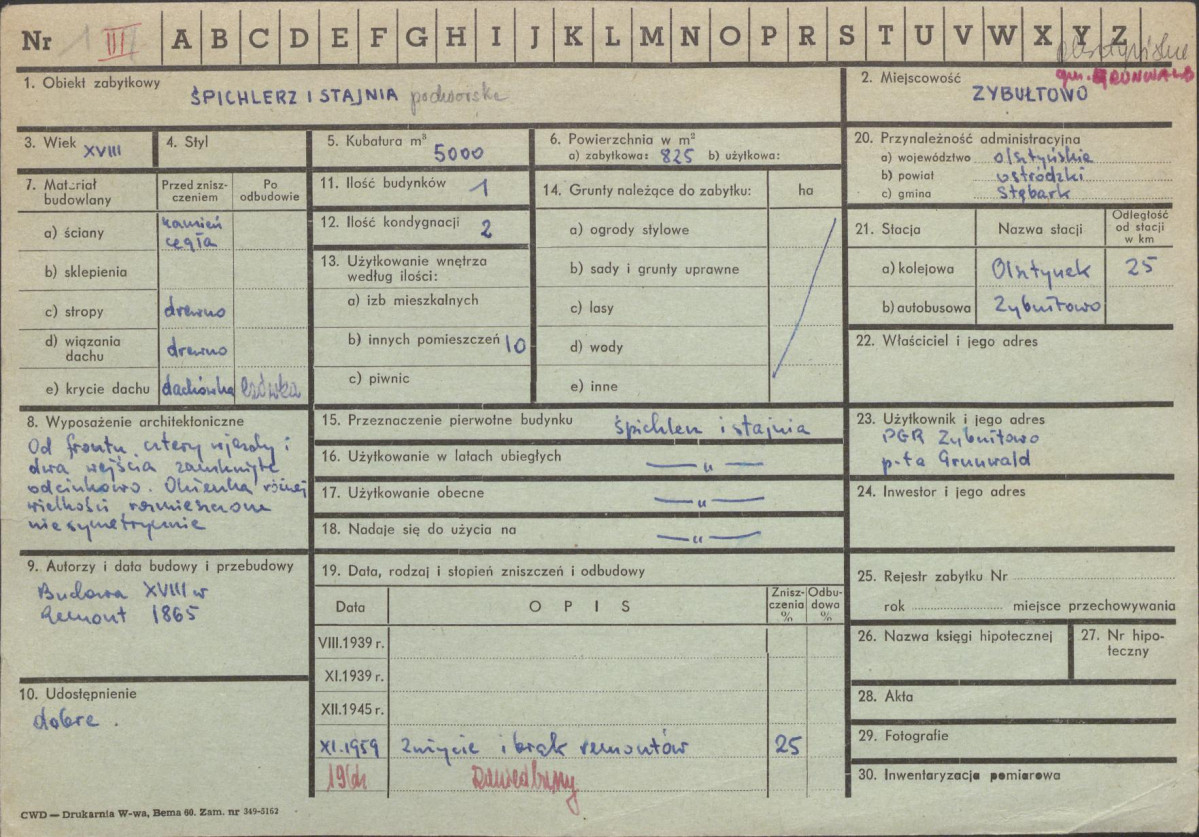 Nr 1 III A B C D E F G H I J K L M N O P R S T U V W X Y Z
olsztyńskie
gm. GRUNWALD
1. Obiekt zabytkowy
ŚPICHLERZ I STAJNIA podworska
2. Miejscowość
ZYBUŁTOWO
3. Wiek XVIII
4. Styl
5. Kubatura m³ 5000
6. Powierzchnia w m²
a) zabytkowa: 825 b) użytkowa:
20. Przynależność administracyjna
a) województwo olsztyńskie
b) powiat ostródzki
c) gmina Stębark
7. Materiał budowlany
Przed zniszczeniem
Po odbudowie
a) ściany kamień cegła
b) sklepienia
c) stropy drewno
d) wiązania dachu drewno
e) krycie dachu dachówka
11. Ilość budynków 1
12. Ilość kondygnacji 2
13. Użytkowanie wnętrza
według ilości:
a) izb mieszkalnych
b) innych pomieszczeń 10
c) piwnic
14. Grunty należące do zabytku: ha
a) ogrody stylowe
b) sady i grunty uprawne
c) lasy
d) wody
e) inne
21. Stacja
Nazwa stacji
Odległość
od stacji
w km
a) kolejowa Olsztynek 25
b) autobusowa Zybułtowo
22. Właściciel i jego adres
8. Wyposażenie architektoniczne
Od frontu cztery wjazdy i
dwa wejścia zamknięte
odcinkowo. Okienka różnej
wielkości rozmieszczone
niesymetrycznie
15. Przeznaczenie pierwotne budynku śpichlerz i stajnia
16. Użytkowanie w latach ubiegłych — „ —
17. Użytkowanie obecne — „ —
18. Nadaje się do użycia na — „ —
23. Użytkownik i jego adres
PGR Zybułtowo
p-ta Grunwald
24. Inwestor i jego adres
9. Autorzy i data budowy i przebudowy
Budowa XVIII w
Remont 1865
10. Udostępnienie
dobre.
19. Data, rodzaj i stopień zniszczeń i odbudowy
Data
OPIS
Zniszczenia %
Odbudowa %
VIII.1939 r.
XI.1939 r.
XII.1945 r.
XI.1959 Zużycie i brak remontów 25
1964 Zaniedbany
25. Rejestr zabytku Nr
rok miejsce przechowywania
26. Nazwa księgi hipotecznej
27. Nr hipoteczny
28. Akta
29. Fotografie
30. Inwentaryzacja pomiarowa
CWD — Drukarnia W-wa, Bema 60. Zam. nr 349-5162